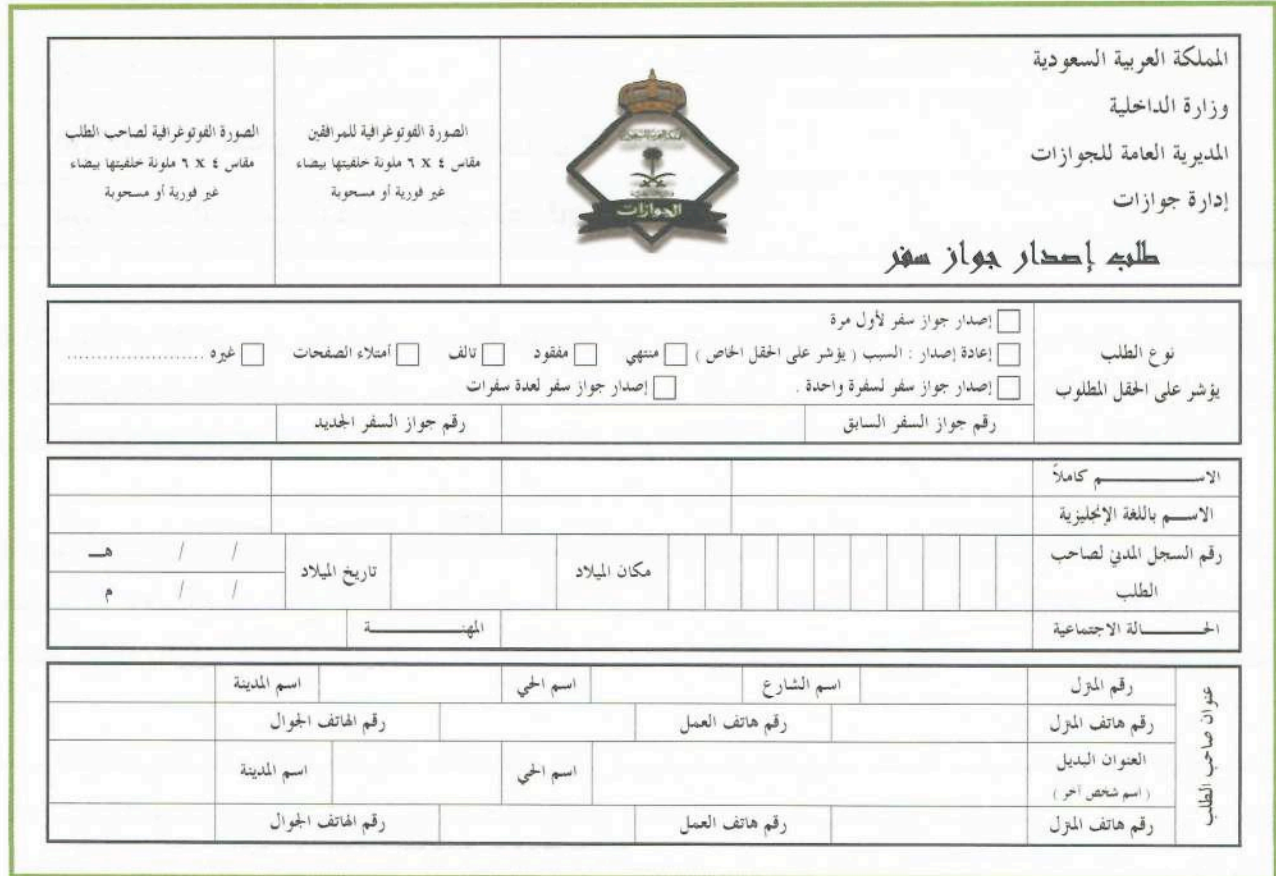 المملكة العربية السعودية
وزارة الداخلية
المديرية العامة للجوازات
إدارة جوازات
طلب إصدار جواز سفر
الجوازات
الصورة الفوتوغرافية للمرافقين
مقاس ٤ X ٦ ملونة خلفيتها بيضاء
غير فورية أو مسحوبة
الصورة الفوتوغرافية لصاحب الطلب
مقاس ٤ X ٦ ملونة خلفيتها بيضاء
غير فورية أو مسحوبة
نوع الطلب
يؤشر على الحقل المطلوب
إصدار جواز سفر لأول مرة
إعادة إصدار : السبب ( يؤشر على الحقل الخاص ) منتهي مفقود تالف أمتلاء الصفحات غيره ......................
إصدار جواز سفر لسفرة واحدة . إصدار جواز سفر لعدة سفرات
رقم جواز السفر السابق رقم جواز السفر الجديد
الاســـــــم كاملاً
الاســـم باللغة الإنجليزية
رقم السجل المدني لصاحب الطلب مكان الميلاد تاريخ الميلاد / / هـ
/ / م
الحـــــــالة الاجتماعية المهنـــــــة
عنوان صاحب الطلب
رقم المنزل اسم الشارع اسم الحي اسم المدينة
رقم هاتف المنزل رقم هاتف العمل رقم الهاتف الجوال
العنوان البديل ( اسم شخص آخر ) اسم الحي اسم المدينة
رقم هاتف المنزل رقم هاتف العمل رقم الهاتف الجوال